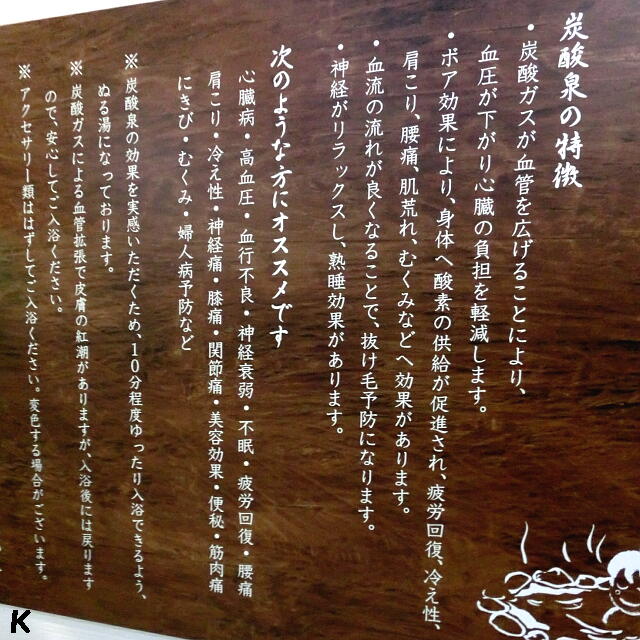 炭酸泉の特徴
・炭酸ガスが血管を広げることにより、
血圧が下がり心臓の負担を軽減します。
・ボア効果により、身体へ酸素の供給が促進され、疲労回復、冷え性、
肩こり、腰痛、肌荒れ、むくみなどへ効果があります。
・血流の流れが良くなることで、抜け毛予防になります。
・神経がリラックスし、熟睡効果があります。
次のような方にオススメです
心臓病・高血圧・血行不良・神経衰弱・不眠・疲労回復・腰痛
肩こり・冷え性・神経痛・膝痛・関節痛・美容効果・便秘・筋肉痛
にきび・むくみ・婦人病予防など
※炭酸泉の効果を実感いただくため、10分程度ゆったり入浴できるよう、
ぬる湯になっております。
※炭酸ガスによる血管拡張で皮膚の紅潮がありますが、入浴後には戻ります
ので、安心してご入浴ください。
※アクセサリー類ははずしてご入浴ください。変色する場合がございます。
K